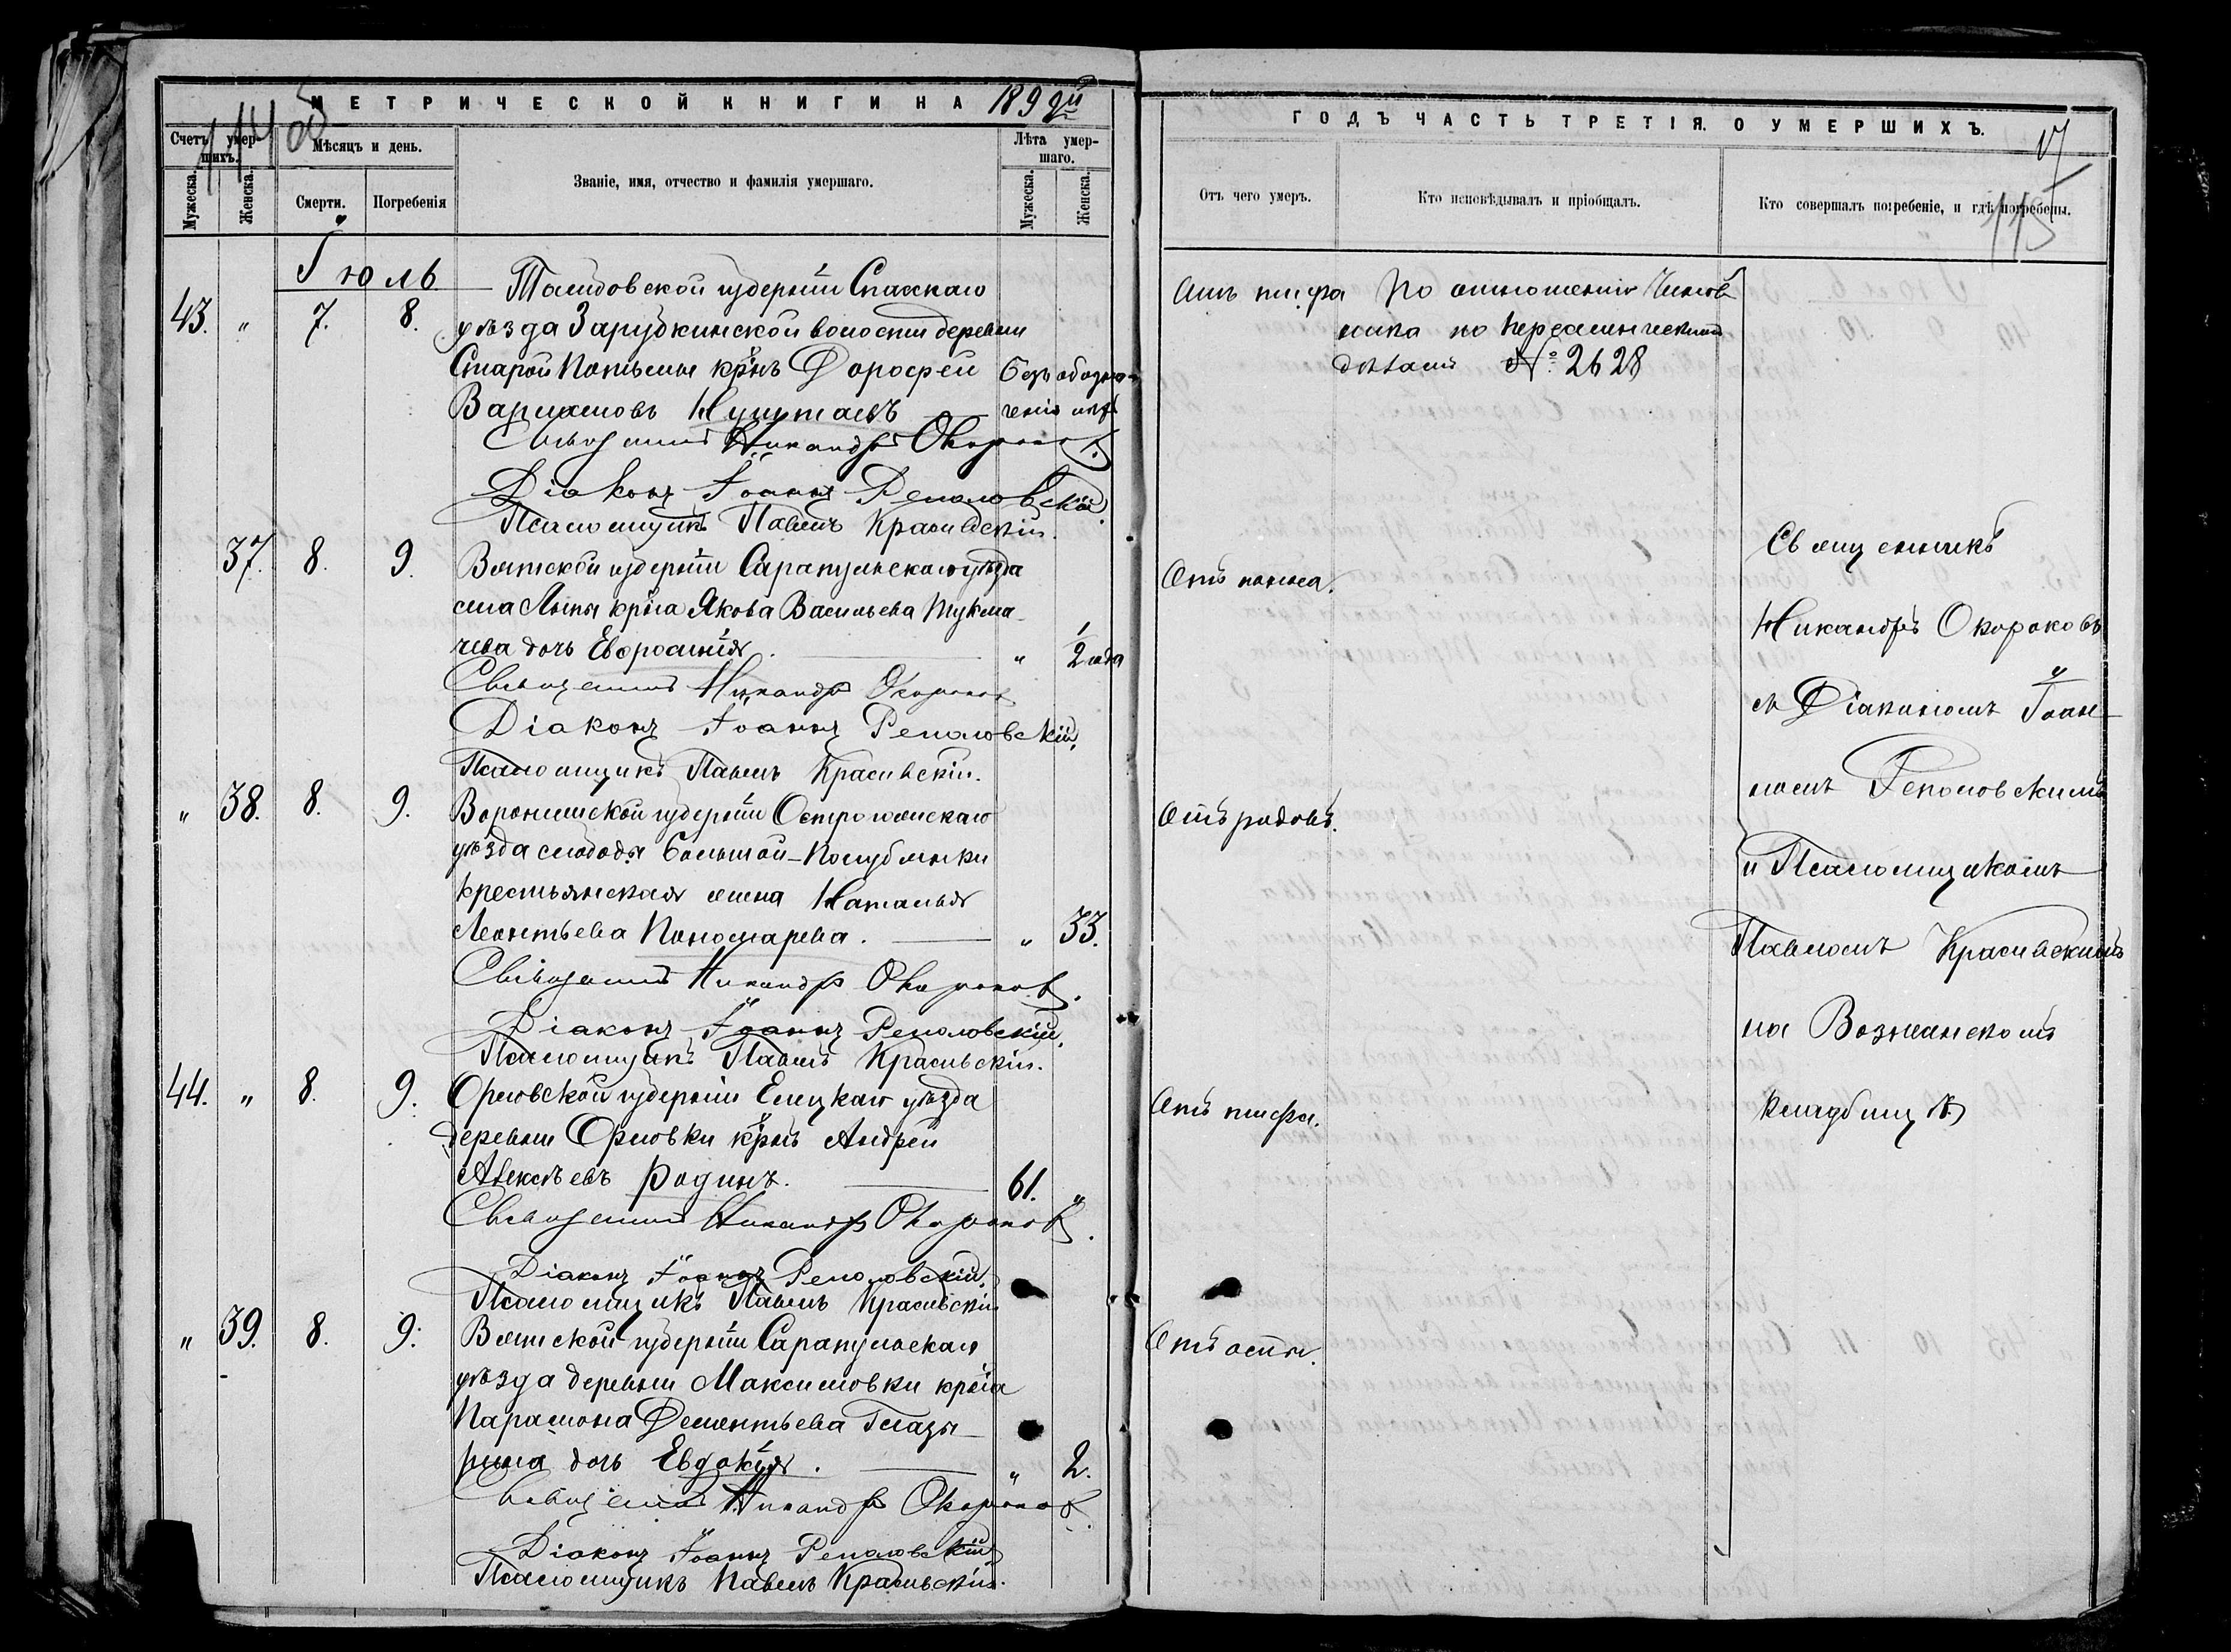 МЕТРИЧЕСКОЙ КНИГИ НА 1899й
114 об
Счетъ умер-
шихъ.
Мѣсяцъ и день.
Званіе, имя, отчество и фамилія умершаго.
Лѣта умер-
шаго.
Мужеска.
Женска.
Смерти.
Погребенія
Мужеска.
Женска.
Іюль
Тамбовской губерніи Спасскаго
43. " 7. 8. уѣзда Зарубкинской волости деревни
Старой Потьмы крнъ Дорофей Безъ обозна-
Варламовъ Нуштаевъ ченія лѣтъ
Священникъ Никандръ Окороковъ.
Діаконъ Іоаннъ Реполовскій.
Псаломщикъ Павелъ Красивскій.
37. 8. 9. Вятской губерніи Сарапульскаго уѣзда
села крна Якова Васильева Тукма-
чева дочь Евфросинія. " 1/2 года
Священникъ Никандръ Окороковъ
Діаконъ Іоаннъ Реполовскій.
Псаломщикъ Павелъ Красивскій.
" 38. 8. 9. Воронежской губерніи Острогожскаго
уѣзда слободы Большой-Полубянки
крестьянская жена Наталья
Леонтьева Пономарева. " 33.
Священникъ Никандръ Окороковъ.
Діаконъ Іоаннъ Реполовскій.
Псаломщикъ Павелъ Красивскій.
44. " 8. 9. Орловской губерніи Елецкаго уѣзда
деревни Орловки крнъ Андрей
Алексѣевъ Родинъ. 61. "
Священникъ Никандръ Окороковъ.
Діаконъ Іоаннъ Реполовскій.
Псаломщикъ Павелъ Красивскій
" 39. 8. 9. Вятской губерніи Сарапульскаго
уѣзда деревни Максимовки крна
Парамона Дементьева Глазы-
рина дочь Евдокія. " 2.
Священникъ Никандръ Окороковъ.
Діаконъ Іоаннъ Реполовскій
Псаломщикъ Павелъ Красивскій.
ГОДЪ ЧАСТЬ ТРЕТІЯ. О УМЕРШИХЪ.
115
Отъ чего умеръ.
Кто исповѣдывалъ и пріобщалъ.
Кто совершалъ погребеніе, и гдѣ погребены.
Отъ тифа По отношенію Чинов
ника по Переселенческимъ
дѣламъ № 2628
Отъ поноса.
Отъ родовъ.
Отъ тифа.
Отъ оспы.
Священникъ
Никандръ Окороковъ
съ Діакономъ Іоан-
номъ Реполовскимъ
и Псаломщикомъ
Павломъ Красивскимъ
на
кладбищѣ